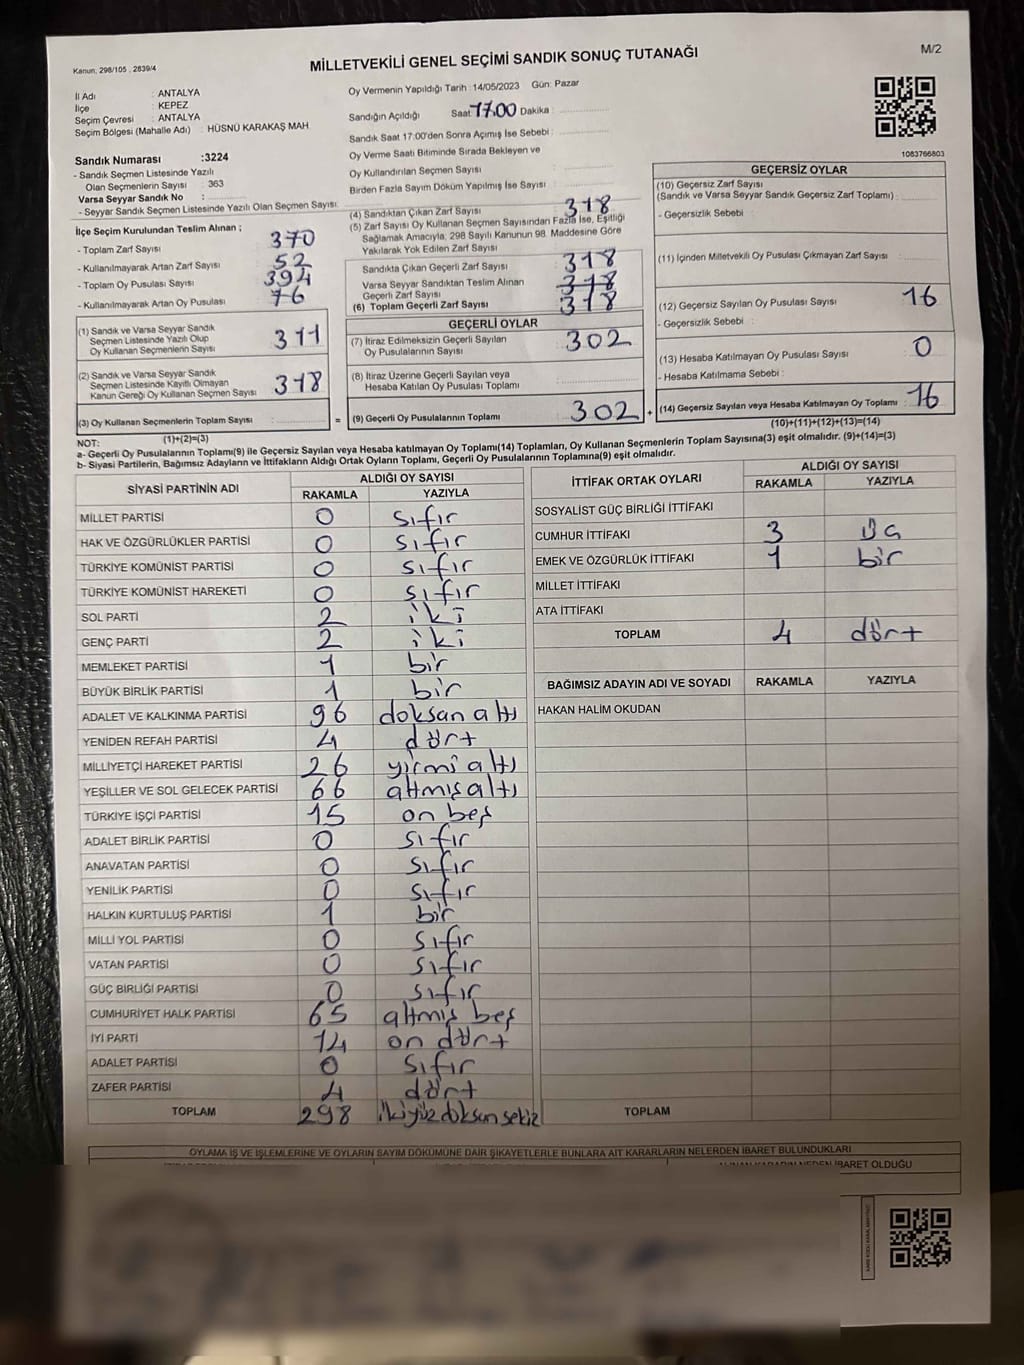 Kanun; 298/105 , 2839/4
MİLLETVEKİLİ GENEL SEÇİMİ SANDIK SONUÇ TUTANAĞI
M/2
İl Adı : ANTALYA
İlçe : KEPEZ
Seçim Çevresi : ANTALYA
Seçim Bölgesi (Mahalle Adı) : HÜSNÜ KARAKAŞ MAH.
Sandık Numarası :3224
- Sandık Seçmen Listesinde Yazılı
Olan Seçmenlerin Sayısı : 363
Varsa Seyyar Sandık No :
- Seyyar Sandık Seçmen Listesinde Yazılı Olan Seçmen Sayısı:
İlçe Seçim Kurulundan Teslim Alınan ;
- Toplam Zarf Sayısı 370
- Kullanılmayarak Artan Zarf Sayısı 52
- Toplam Oy Pusulası Sayısı 394
- Kullanılmayarak Artan Oy Pusulası 76
(1) Sandık ve Varsa Seyyar Sandık
Seçmen Listesinde Yazılı Olup
Oy Kullanan Seçmenlerin Sayısı 311
(2) Sandık ve Varsa Seyyar Sandık
Seçmen Listesinde Kayıtlı Olmayan
Kanun Gereği Oy Kullanan Seçmen Sayısı 318
(3) Oy Kullanan Seçmenlerin Toplam Sayısı :
(1)+(2)=(3)
Oy Vermenin Yapıldığı Tarih :14/05/2023 Gün: Pazar
Sandığın Açıldığı Saat 17.00 Dakika :
Sandık Saat 17:00'den Sonra Açımış İse Sebebi :
Oy Verme Saati Bitiminde Sırada Bekleyen ve
Oy Kullandırılan Seçmen Sayısı :
Birden Fazla Sayım Döküm Yapılmış İse Sayısı :
(4) Sandıktan Çıkan Zarf Sayısı 318
(5) Zarf Sayısı Oy Kullanan Seçmen Sayısından Fazla İse, Eşitliği
Sağlamak Amacıyla, 298 Sayılı Kanunun 98. Maddesine Göre
Yakılarak Yok Edilen Zarf Sayısı
Sandıkta Çıkan Geçerli Zarf Sayısı 318
Varsa Seyyar Sandıktan Teslim Alınan
Geçerli Zarf Sayısı 318
(6) Toplam Geçerli Zarf Sayısı 318
GEÇERLİ OYLAR
(7) İtiraz Edilmeksizin Geçerli Sayılan
Oy Pusulalarının Sayısı 302
(8) İtiraz Üzerine Geçerli Sayılan veya
Hesaba Katılan Oy Pusulası Toplamı :
= (9) Geçerli Oy Pusulalarının Toplamı 302 +
1083766803
GEÇERSİZ OYLAR
(10) Geçersiz Zarf Sayısı
(Sandık ve Varsa Seyyar Sandık Geçersiz Zarf Toplamı) :
- Geçersizlik Sebebi :
(11) İçinden Milletvekili Oy Pusulası Çıkmayan Zarf Sayısı
(12) Geçersiz Sayılan Oy Pusulası Sayısı 16
- Geçersizlik Sebebi :
(13) Hesaba Katılmayan Oy Pusulası Sayısı 0
- Hesaba Katılmama Sebebi :
(14) Geçersiz Sayılan veya Hesaba Katılmayan Oy Toplamı : 16
(10)+(11)+(12)+(13)=(14)
NOT:
a- Geçerli Oy Pusulaların Toplamı(9) ile Geçersiz Sayılan veya Hesaba katılmayan Oy Toplamı(14) Toplamları, Oy Kullanan Seçmenlerin Toplam Sayısına(3) eşit olmalıdır. (9)+(14)=(3)
b- Siyasi Partilerin, Bağımsız Adayların ve İttifakların Aldığı Ortak Oyların Toplamı, Geçerli Oy Pusulalarının Toplamına(9) eşit olmalıdır.
SİYASİ PARTİNİN ADI ALDIĞI OY SAYISI
RAKAMLA YAZIYLA
MİLLET PARTİSİ 0 sıfır
HAK VE ÖZGÜRLÜKLER PARTİSİ 0 sıfır
TÜRKİYE KOMÜNİST PARTİSİ 0 sıfır
TÜRKİYE KOMÜNİST HAREKETİ 0 sıfır
SOL PARTİ 2 iki
GENÇ PARTİ 2 iki
MEMLEKET PARTİSİ 1 bir
BÜYÜK BİRLİK PARTİSİ 1 bir
ADALET VE KALKINMA PARTİSİ 96 doksan altı
YENİDEN REFAH PARTİSİ 4 dört
MİLLİYETÇİ HAREKET PARTİSİ 26 yirmi altı
YEŞİLLER VE SOL GELECEK PARTİSİ 66 altmış altı
TÜRKİYE İŞÇİ PARTİSİ 15 on beş
ADALET BİRLİK PARTİSİ 0 sıfır
ANAVATAN PARTİSİ 0 sıfır
YENİLİK PARTİSİ 0 sıfır
HALKIN KURTULUŞ PARTİSİ 1 bir
MİLLİ YOL PARTİSİ 0 sıfır
VATAN PARTİSİ 0 sıfır
GÜÇ BİRLİĞİ PARTİSİ 0 sıfır
CUMHURİYET HALK PARTİSİ 65 altmış beş
İYİ PARTİ 14 on dört
ADALET PARTİSİ 0 sıfır
ZAFER PARTİSİ 4 dört
TOPLAM 298 ikiyüz doksan sekiz
İTTİFAK ORTAK OYLARI ALDIĞI OY SAYISI
RAKAMLA YAZIYLA
SOSYALİST GÜÇ BİRLİĞİ İTTİFAKI
CUMHUR İTTİFAKI 3 üç
EMEK VE ÖZGÜRLÜK İTTİFAKI 1 bir
MİLLET İTTİFAKI
ATA İTTİFAKI
TOPLAM 4 dört
BAĞIMSIZ ADAYIN ADI VE SOYADI RAKAMLA YAZIYLA
HAKAN HALİM OKUDAN
TOPLAM
OYLAMA İŞ VE İŞLEMLERİNE VE OYLARIN SAYIM DÖKÜMÜNE DAİR ŞİKAYETLERLE BUNLARA AİT KARARLARIN NELERDEN İBARET BULUNDUKLARI
İBARET OLDUĞU